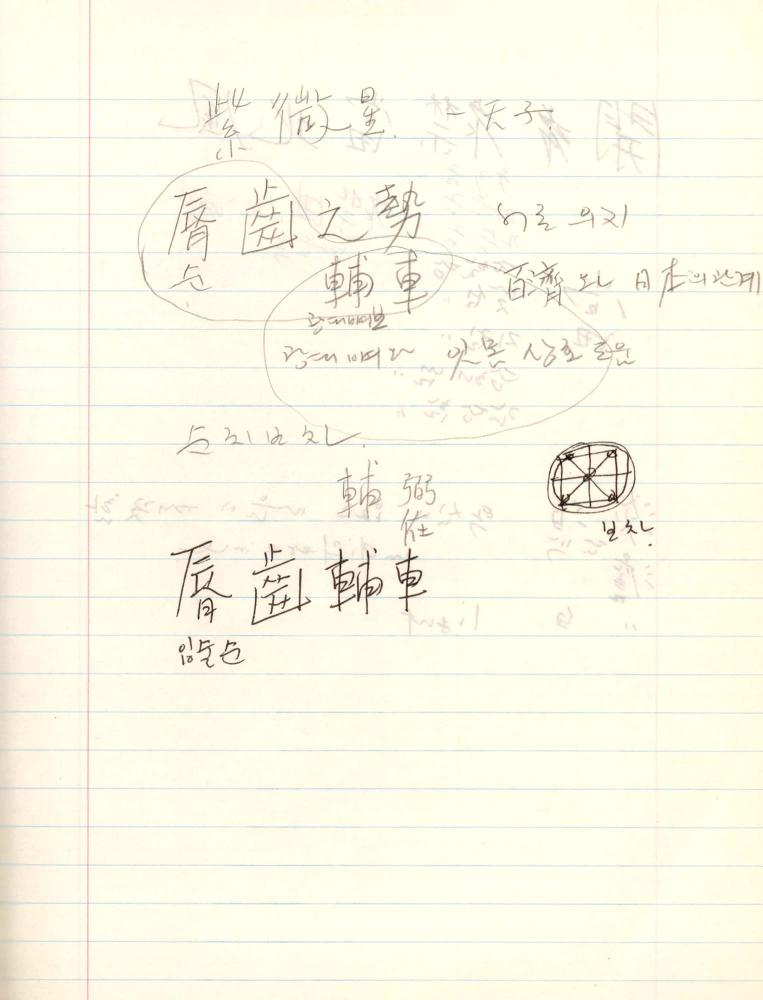 紫微星. - 天子.
脣齒之勢 서로 의지
순 輔車 百濟와 日本의 관계
광대뼈보
광대뼈와 잇몸 상호 도움
순치보차.
輔弼
佐
보차.
脣齒輔車
입술순